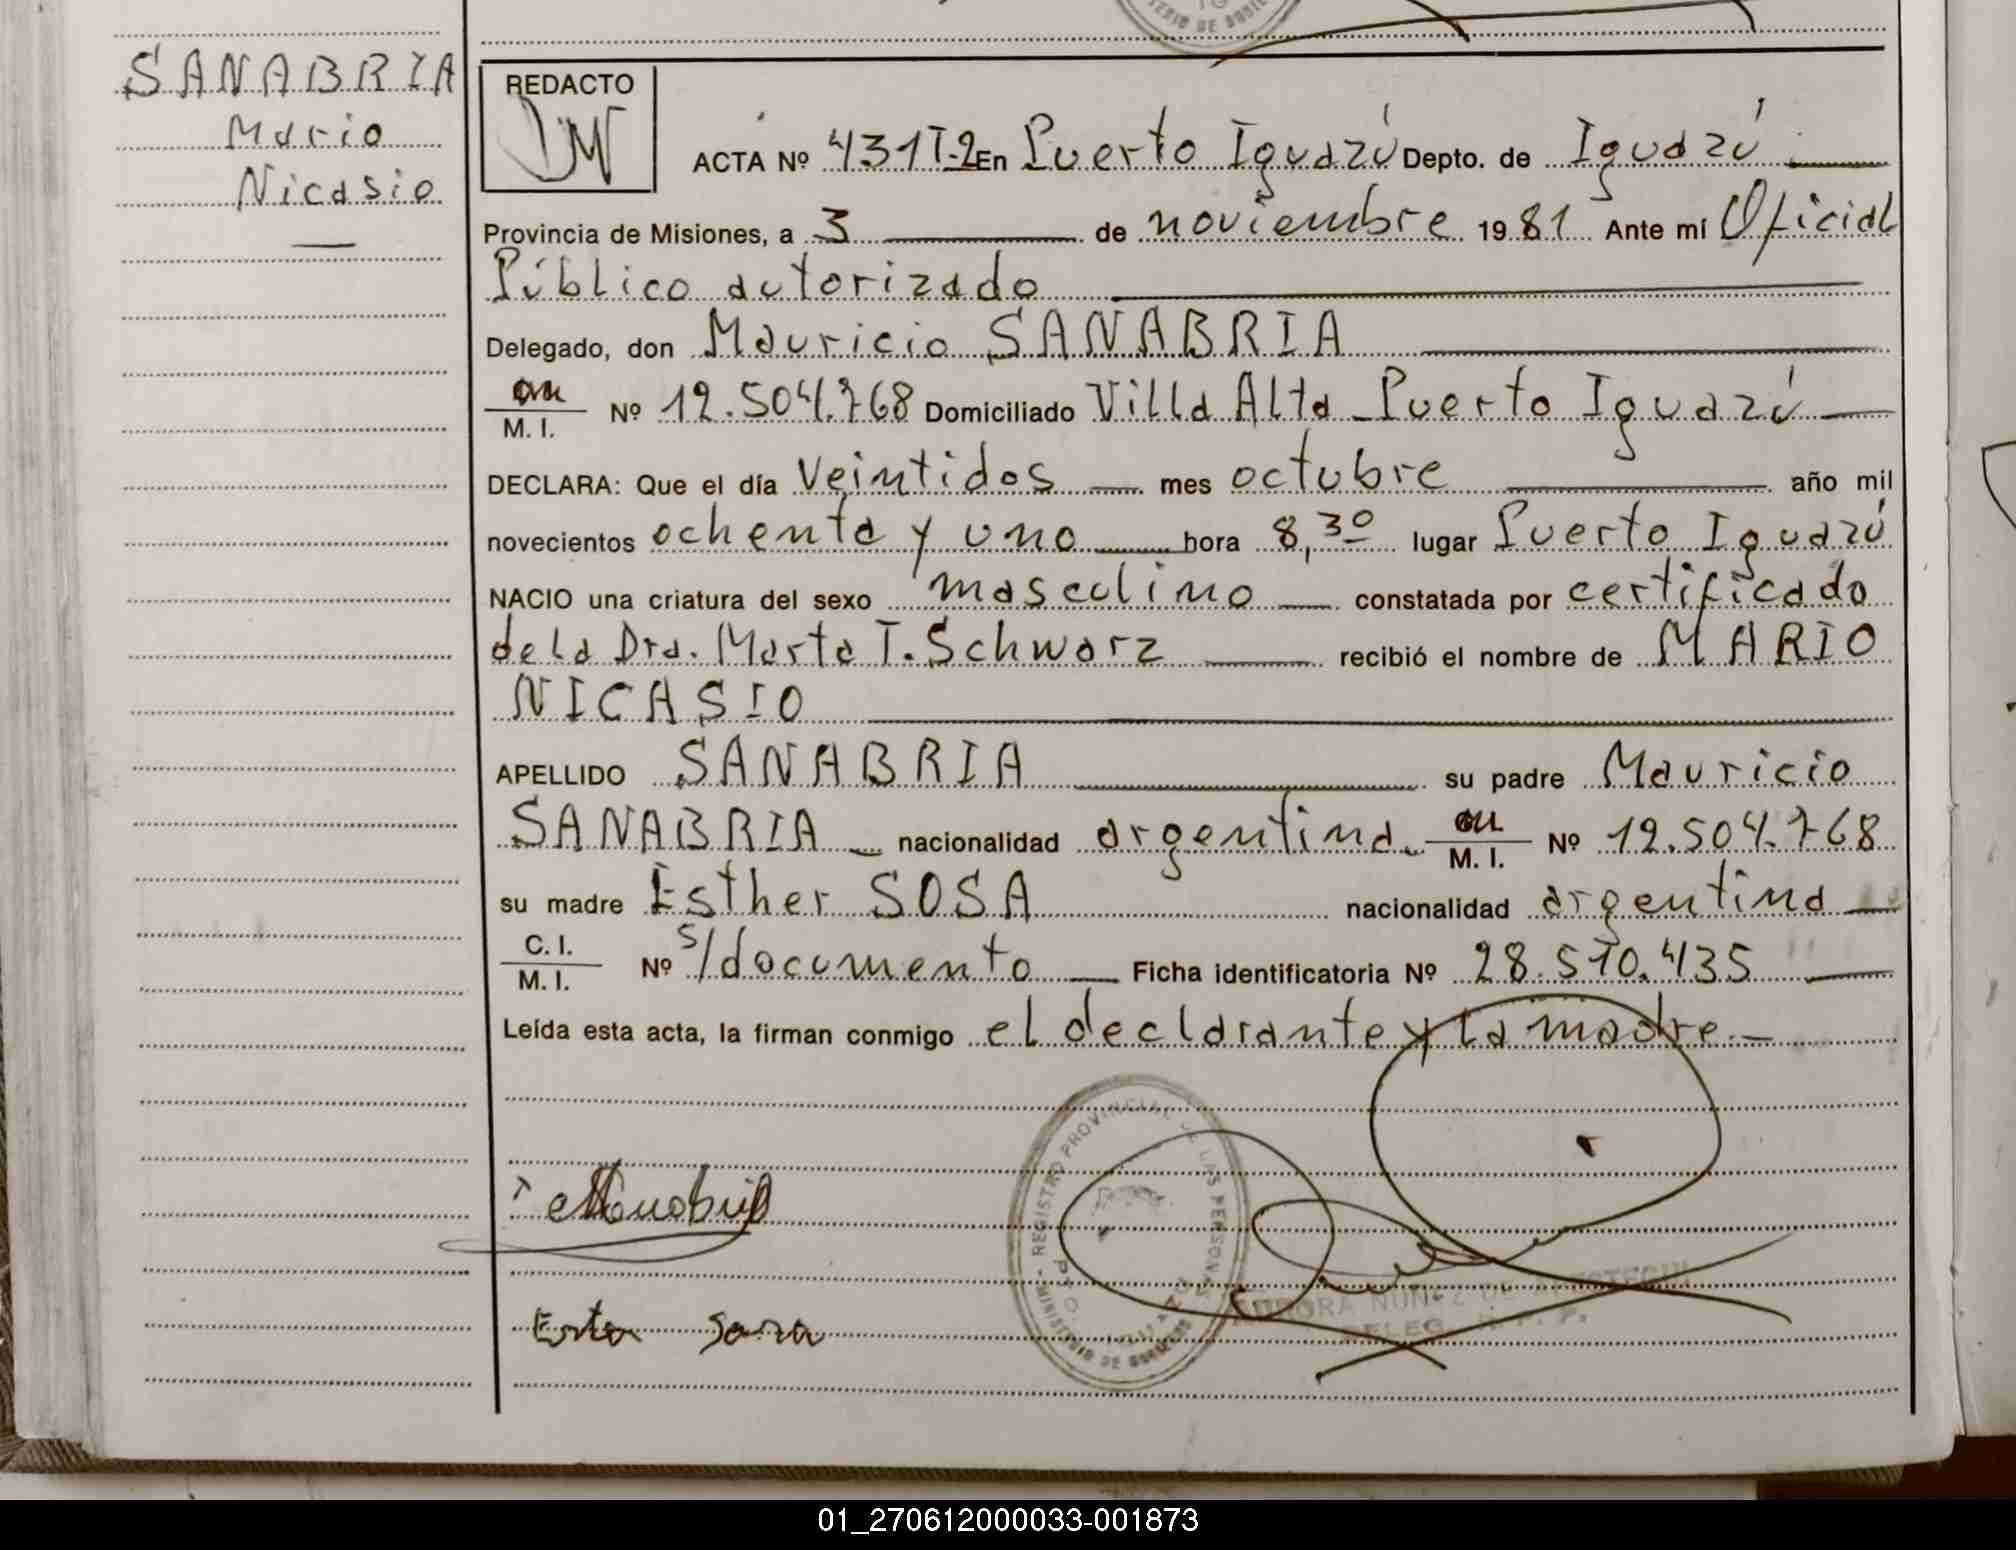 SANABRIA
Mario
Nicasio
REDACTO
ACTA Nº 431T-2 En Puerto Iguazú Depto. de Iguazú
Provincia de Misiones, a 3 de noviembre 1981 Ante mí Oficial
Público autorizado
Delegado, don Mauricio SANABRIA
M. I. Nº 12.504.768 Domiciliado Villa Alta Puerto Iguazú
DECLARA: Que el día veintidos mes octubre año mil
novecientos ochenta y uno hora 8,30 lugar Puerto Iguazú
NACIO una criatura del sexo masculino constatada por certificado
de la Dra. Marta T. Schwarz recibió el nombre de MARIO
NICASIO
APELLIDO SANABRIA su padre Mauricio
SANABRIA nacionalidad argentina M. I. Nº 12.504.768
su madre Esther SOSA nacionalidad argentina
C. I.
M. I. Nº s/documento Ficha identificatoria Nº 28.510.435
Leída esta acta, la firman conmigo el declarante y la madre.-
REGISTRO PROVINCIAL DE LAS PERSONAS
MINISTERIO DE GOBIERNO
AURORA NUÑEZ DE
DELEG. R. P. P.
01_270612000033-001873